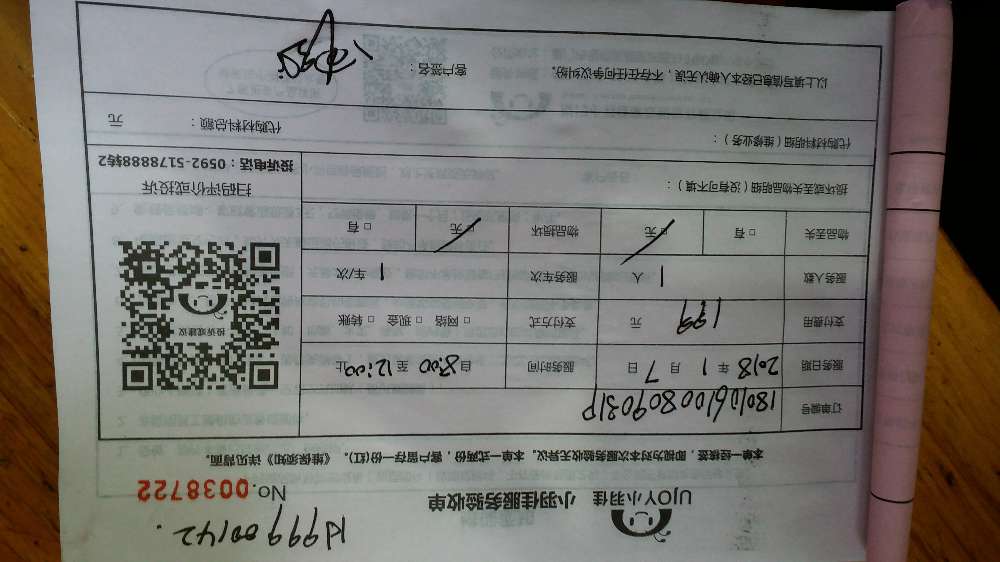 Kf99900142.
UJOY小羽佳 小羽佳服务验收单 No.0038722
本单一经核签，即视为对本次服务验收无异议。本单一式两份，客户留存一份(红)。《维保须知》详见背面。
订单编号 180106100809031P
服务日期 2018 年 1 月 7 日 服务时间 自8:00 至 12:00止
支付费用 199 元 支付方式 □ 网络 □ 现金 □ 转账
服务人数 1 人 服务车次 1 车/次
物品丢失 □ 有 □ 无 物品损坏 □ 无 □ 有
投诉或建议
扫码评价或投诉
投诉电话：0592-5178888转2
损坏或丢失物品明细（没有可不填）：
代购材料明细（维修业务）： 代购材料总额： 元
以上填写信息已经本人确认无误，不存在任何争议纠纷。 客户签名：